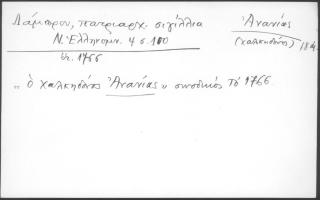 Λάμπρου, πατριαρχ. σιγίλλια
Ν. Ἑλληνομν. 4 σ. 180
ἔτ. 1766
Ἀνανίας
(Χαλκηδόνος)
„ ὁ Χαλκηδόνος Ἀνανίας „ συνοδικός τό 1766